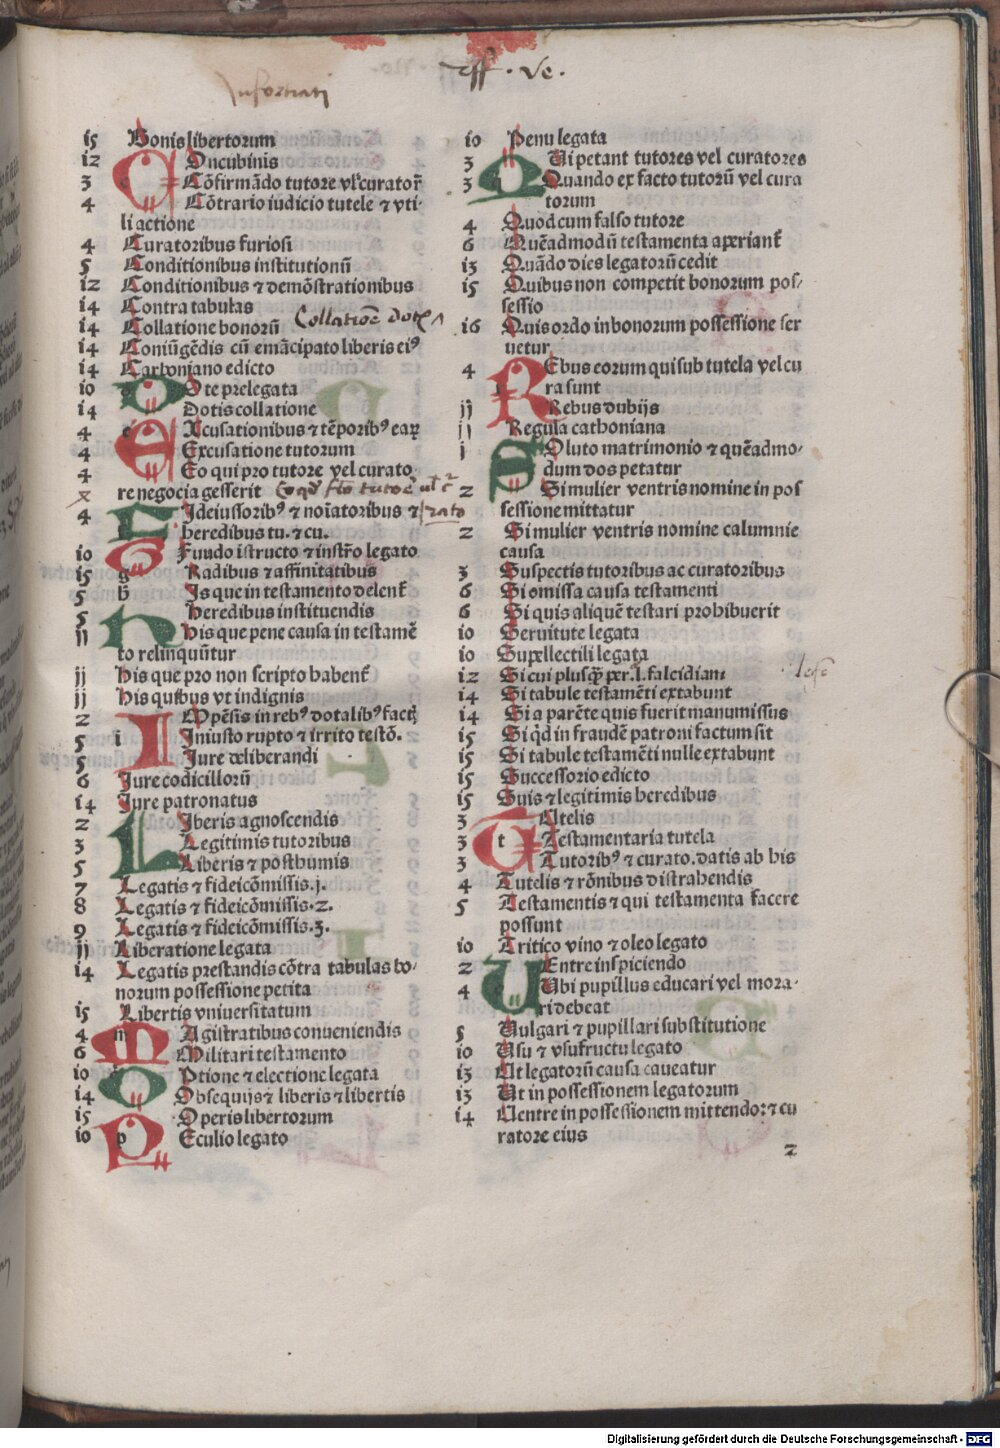 Infortiati
ff . Ve .
i5 Bonis libertorum
i2 COncubinis
3 Cōfirmādo tutore vl' curator̄
4 Cōtrario iudicio tutele ⁊ vti-
li actione
4 Curatoribus furiosi
5 Conditionibus institutionū
i2 Conditionibus ⁊ demōstrationibus
i4 Contra tabulas
i4 Collatione bonorū Collatiōe dotis
i4 Coniūgēdis cū emācipato liberis eiꝰ
i4 Carboniano edicto
io DOte prelegata
i4 Dotis collatione
4 e EXcusationibus ⁊ tēporibꝰ eaꝝ
4 Excusatione tutorum
4 Eo qui pro tutore vel curato
re negocia gesserit
x
4 FIdeiussoribꝰ ⁊ noīatoribus ⁊
heredibus tu. ⁊ cu.
io Fundo īstructo ⁊ instr̄o legato
i5 g GRadibus ⁊ affinitatibus
5 h Is que in testamento delent̄
5 Heredibus instituendis
jj His que pene causa in testamē
to relinquūtur
jj His que pro non scripto habent̄
jj His quibus vt indignis
2 IMpēsis in rebꝰ dotalibꝰ factꝭ
5 i Iniusto rupto ⁊ irrito testō.
5 Iure deliberandi
6 Iure codicillorū
i4 Iure patronatus
2 LIberis agnoscendis
3 Legitimis tutoribus
5 Liberis ⁊ posthumis
7 Legatis ⁊ fideicōmissis .j.
8 Legatis ⁊ fideicōmissis .2.
9 Legatis ⁊ fideicōmissis .3.
jj Liberatione legata
i4 Legatis prestandis cōtra tabulas bo-
norum possessione petita
i5 Libertis vniuersitatum
4 m MAgistratibus conueniendis
6 Militari testamento
io o OPtione ⁊ electione legata
i4 Obsequijs ⁊ liberis ⁊ libertis
i5 Operis libertorum
io p PEculio legato
io Penu legata
3 QUi petant tutores vel curatores
3 Quando ex facto tutorū vel cura
torum
4 Quod cum falso tutore
6 Quēadmodū testamenta aperiant̄
i3 Quādo dies legatorū cedit
i5 Quibus non competit bonorum pos-
sessio
i6 Quis ordo in bonorum possessione ser
uetur
4 REbus eorum qui sub tutela vel cu
ra sunt
jj Rebus dubijs
jj Regula cathoniana
j SOluto matrimonio ⁊ quēadmo-
dum dos petatur
2 Si mulier ventris nomine in pos
sessione mittatur
2 Si mulier ventris nomine calumnie
causa
3 Suspectis tutoribus ac curatoribus
6 Si omissa causa testamenti
6 Si quis aliquē testari prohibuerit
io Seruitute legata
io Supellectili legata
i2 Si cui plusq̄ꝫ per .l. falcidiam
i4 Si tabule testamēti extabunt
i4 Si a parēte quis fuerit manumissus
i5 Si qd̄ in fraudē patroni factum sit
i5 Si tabule testamēti nulle extabunt
i5 Successorio edicto
i5 Suis ⁊ legitimis heredibus
3 TUtelis
3 t Testamentaria tutela
3 Tutoribꝰ ⁊ curato. datis ab his
4 Tutelis ⁊ rōnibus distrahendis
5 Testamentis ⁊ qui testamenta facere
possunt
io Tritico vino ⁊ oleo legato
2 UEntre inspiciendo
4 Ubi pupillus educari vel mora-
ri debeat
5 Vulgari ⁊ pupillari substitutione
io Usu ⁊ vsufructu legato
i3 Ut legatorū causa caueatur
i3 Ut in possessionem legatorum
i4 Uentre in possessionem mittendo: ⁊ cu
ratore eius
2
Digitalisierung gefördert durch die Deutsche Forschungsgemeinschaft - DFG